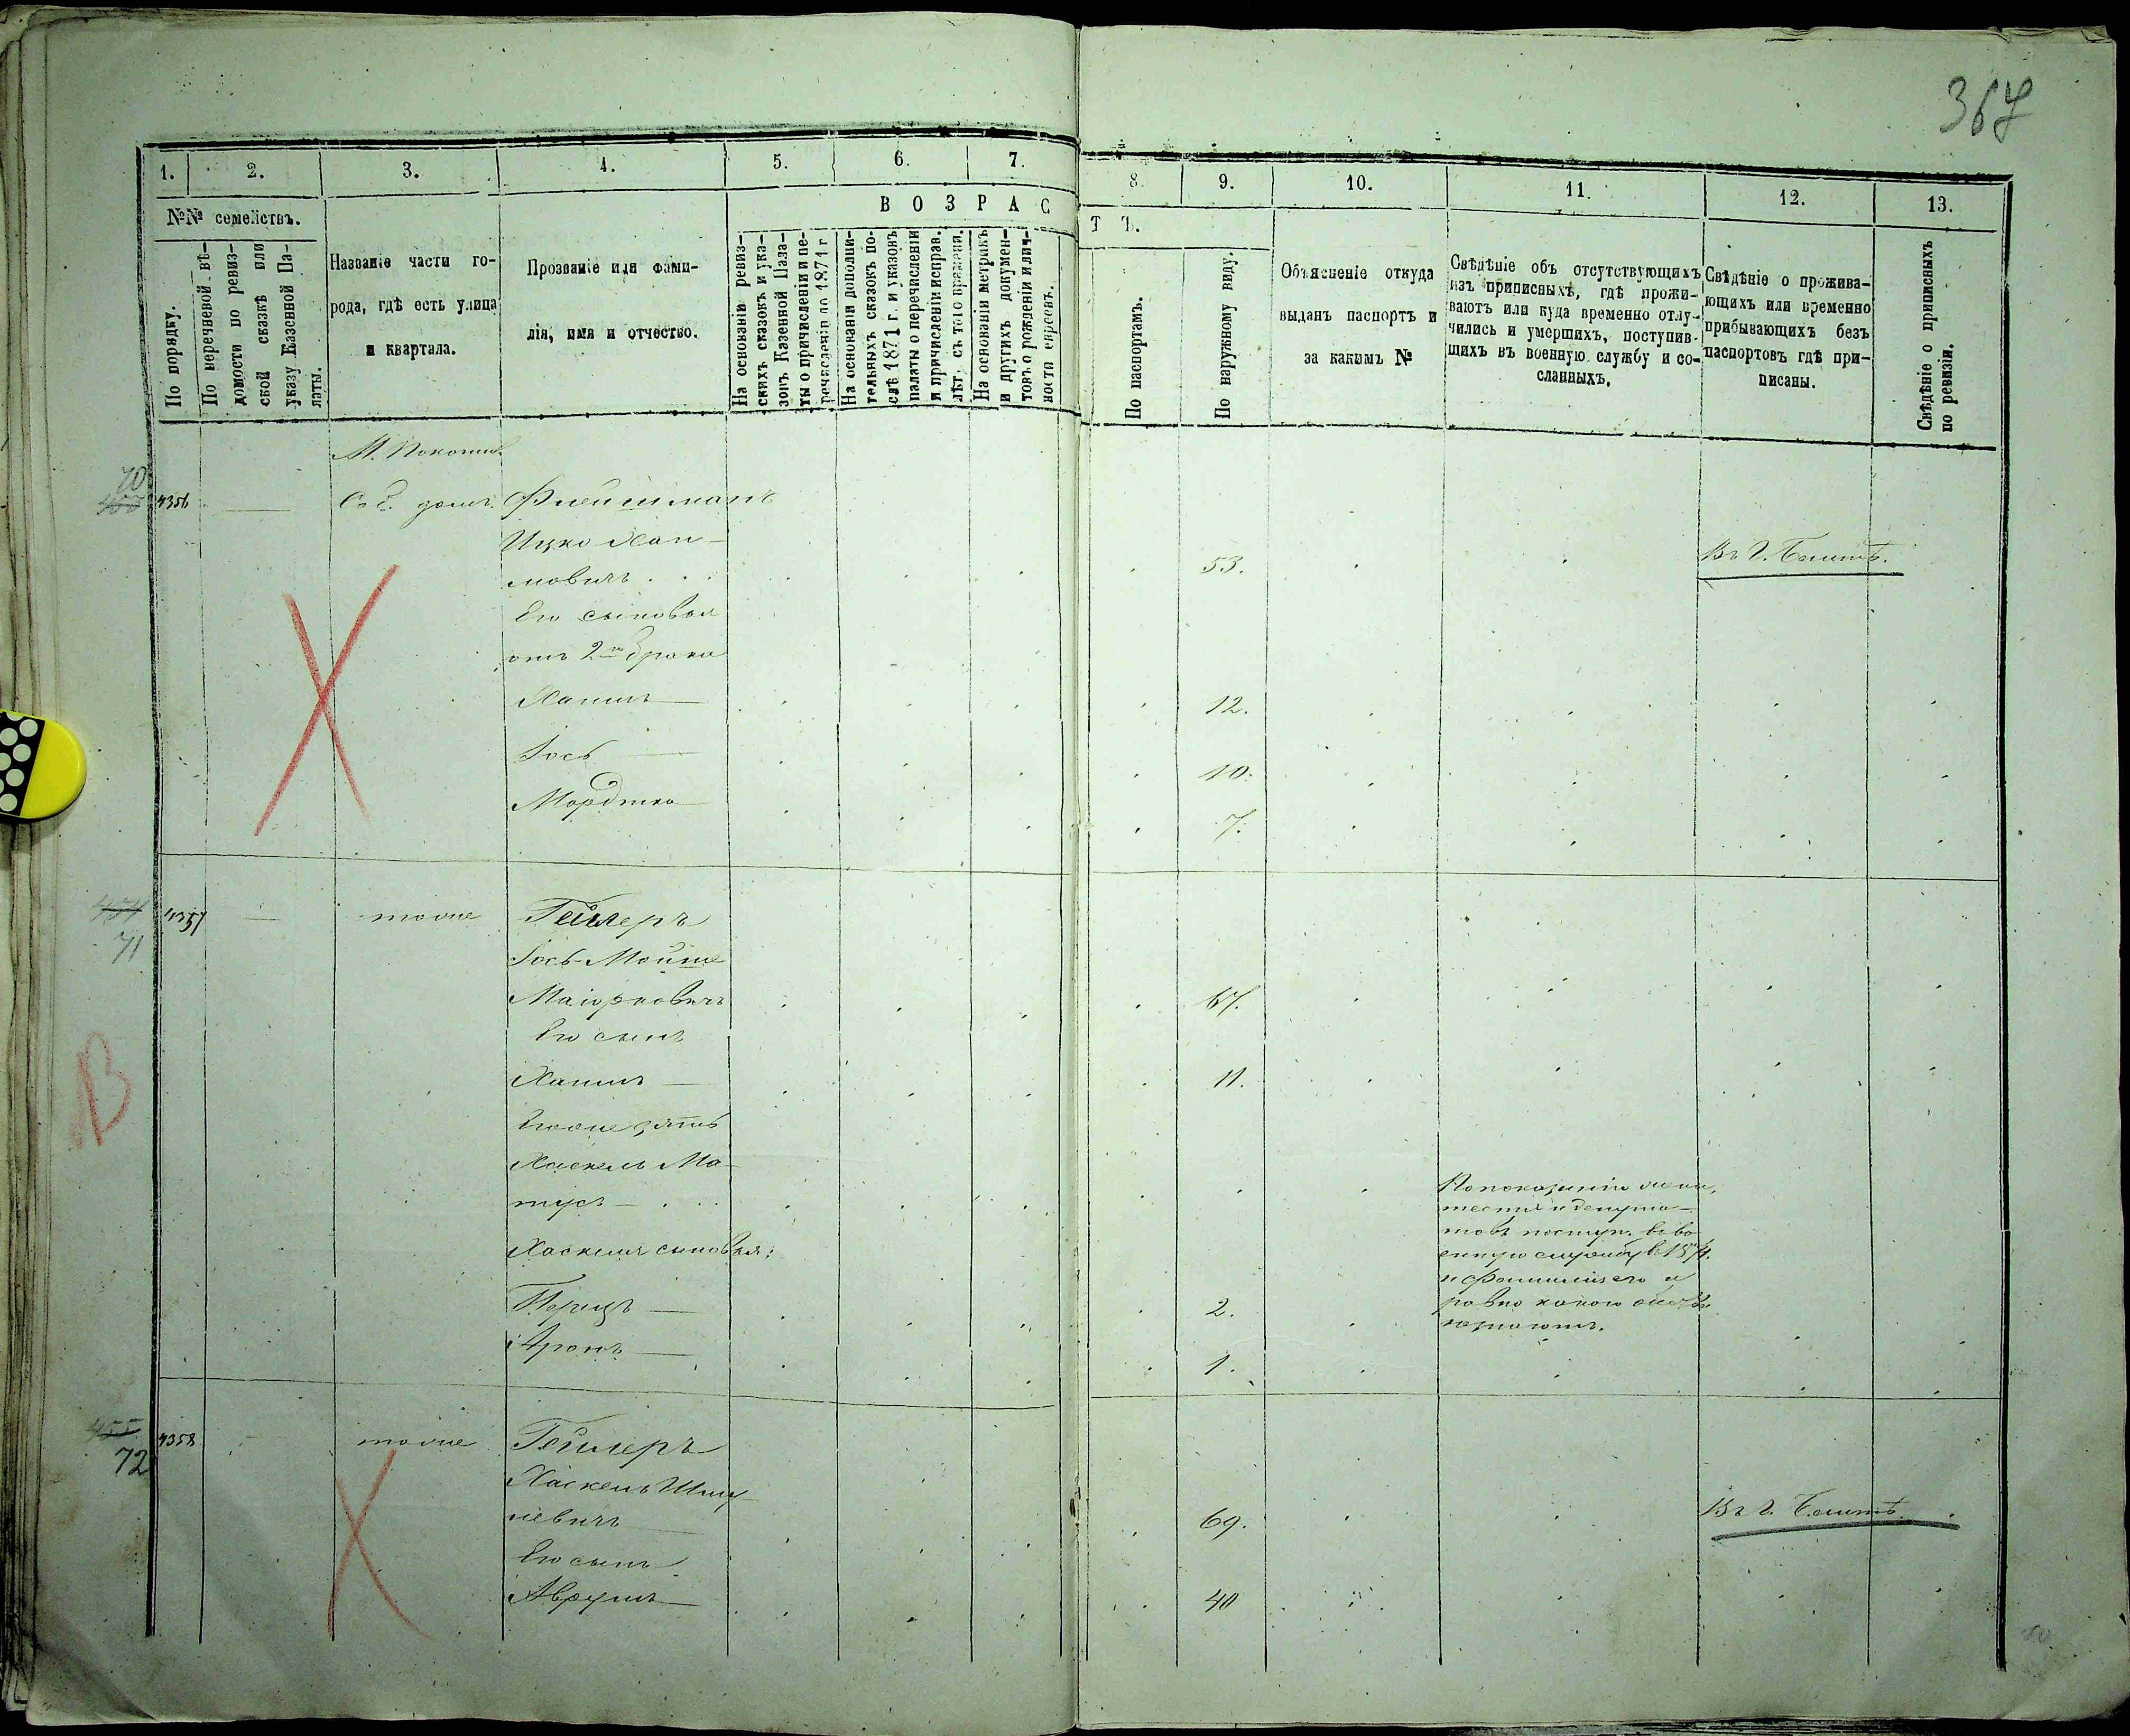 367
1. 2. 3. 4. 5. 6. 7. 8. 9. 10. 11. 12. 13.
№№ семействъ.
По порядку.
По перечневой вѣ-
домости по ревиз-
ской сказкѣ или
указу Казенной Па-
латы.
Названіе части го-
рода, гдѣ есть улица
и квартала.
Прозваніе или фами-
лія, имя и отчество.
ВОЗРАСТЪ.
На основаніи ревиз-
скихъ сказокъ и ука-
зовъ Казенной Пала-
ты о причисленіи и пе-
речисленіи до 1871 г
На основаніи дополни-
тельныхъ сказокъ по-
слѣ 1871 г. и указовъ
палаты о перечисленіи
и причисленіи исправ.
лѣт съ того времени.
На основаніи метрикъ
и другихъ докумен-
товъ о рожденіи илич-
ности евреевъ.
По паспортамъ.
По наружному виду.
Объясненіе откуда
выданъ паспортъ и
за какимъ №
Свѣдѣніе объ отсутствующихъ
изъ приписныхъ, гдѣ прожи-
ваютъ или куда временно отлу-
чились и умершихъ, поступив-
шихъ въ военную службу и со-
сланныхъ.
Свѣдѣніе о прожива-
ющихъ или временно
прибывающихъ безъ
паспортовъ гдѣ при-
писаны.
Свѣдѣніе о приписныхъ
по ревизіи.
70
4356 Соб. домъ. Флейшманъ
Ицко Хаи-
мовичъ 53. Въ г.
Его сыновья
отъ 2го брака
Хаимъ 12.
Іось 10.
Мордтко 7.
454 4357 тоже Гейлеръ
71
Іось-Мойше
Маіорковичъ 67.
Его сынъ
Хаимъ 11.
Его же зять
Хаскель Ма-
тусъ
Хаскеля сыновья:
Перецъ 2.
Аронъ 1.
В
455 4358 тоже Гейлеръ
72
Хаскель Шму-
левичъ 69. Въ г.
Его сынъ
Аврумъ 40